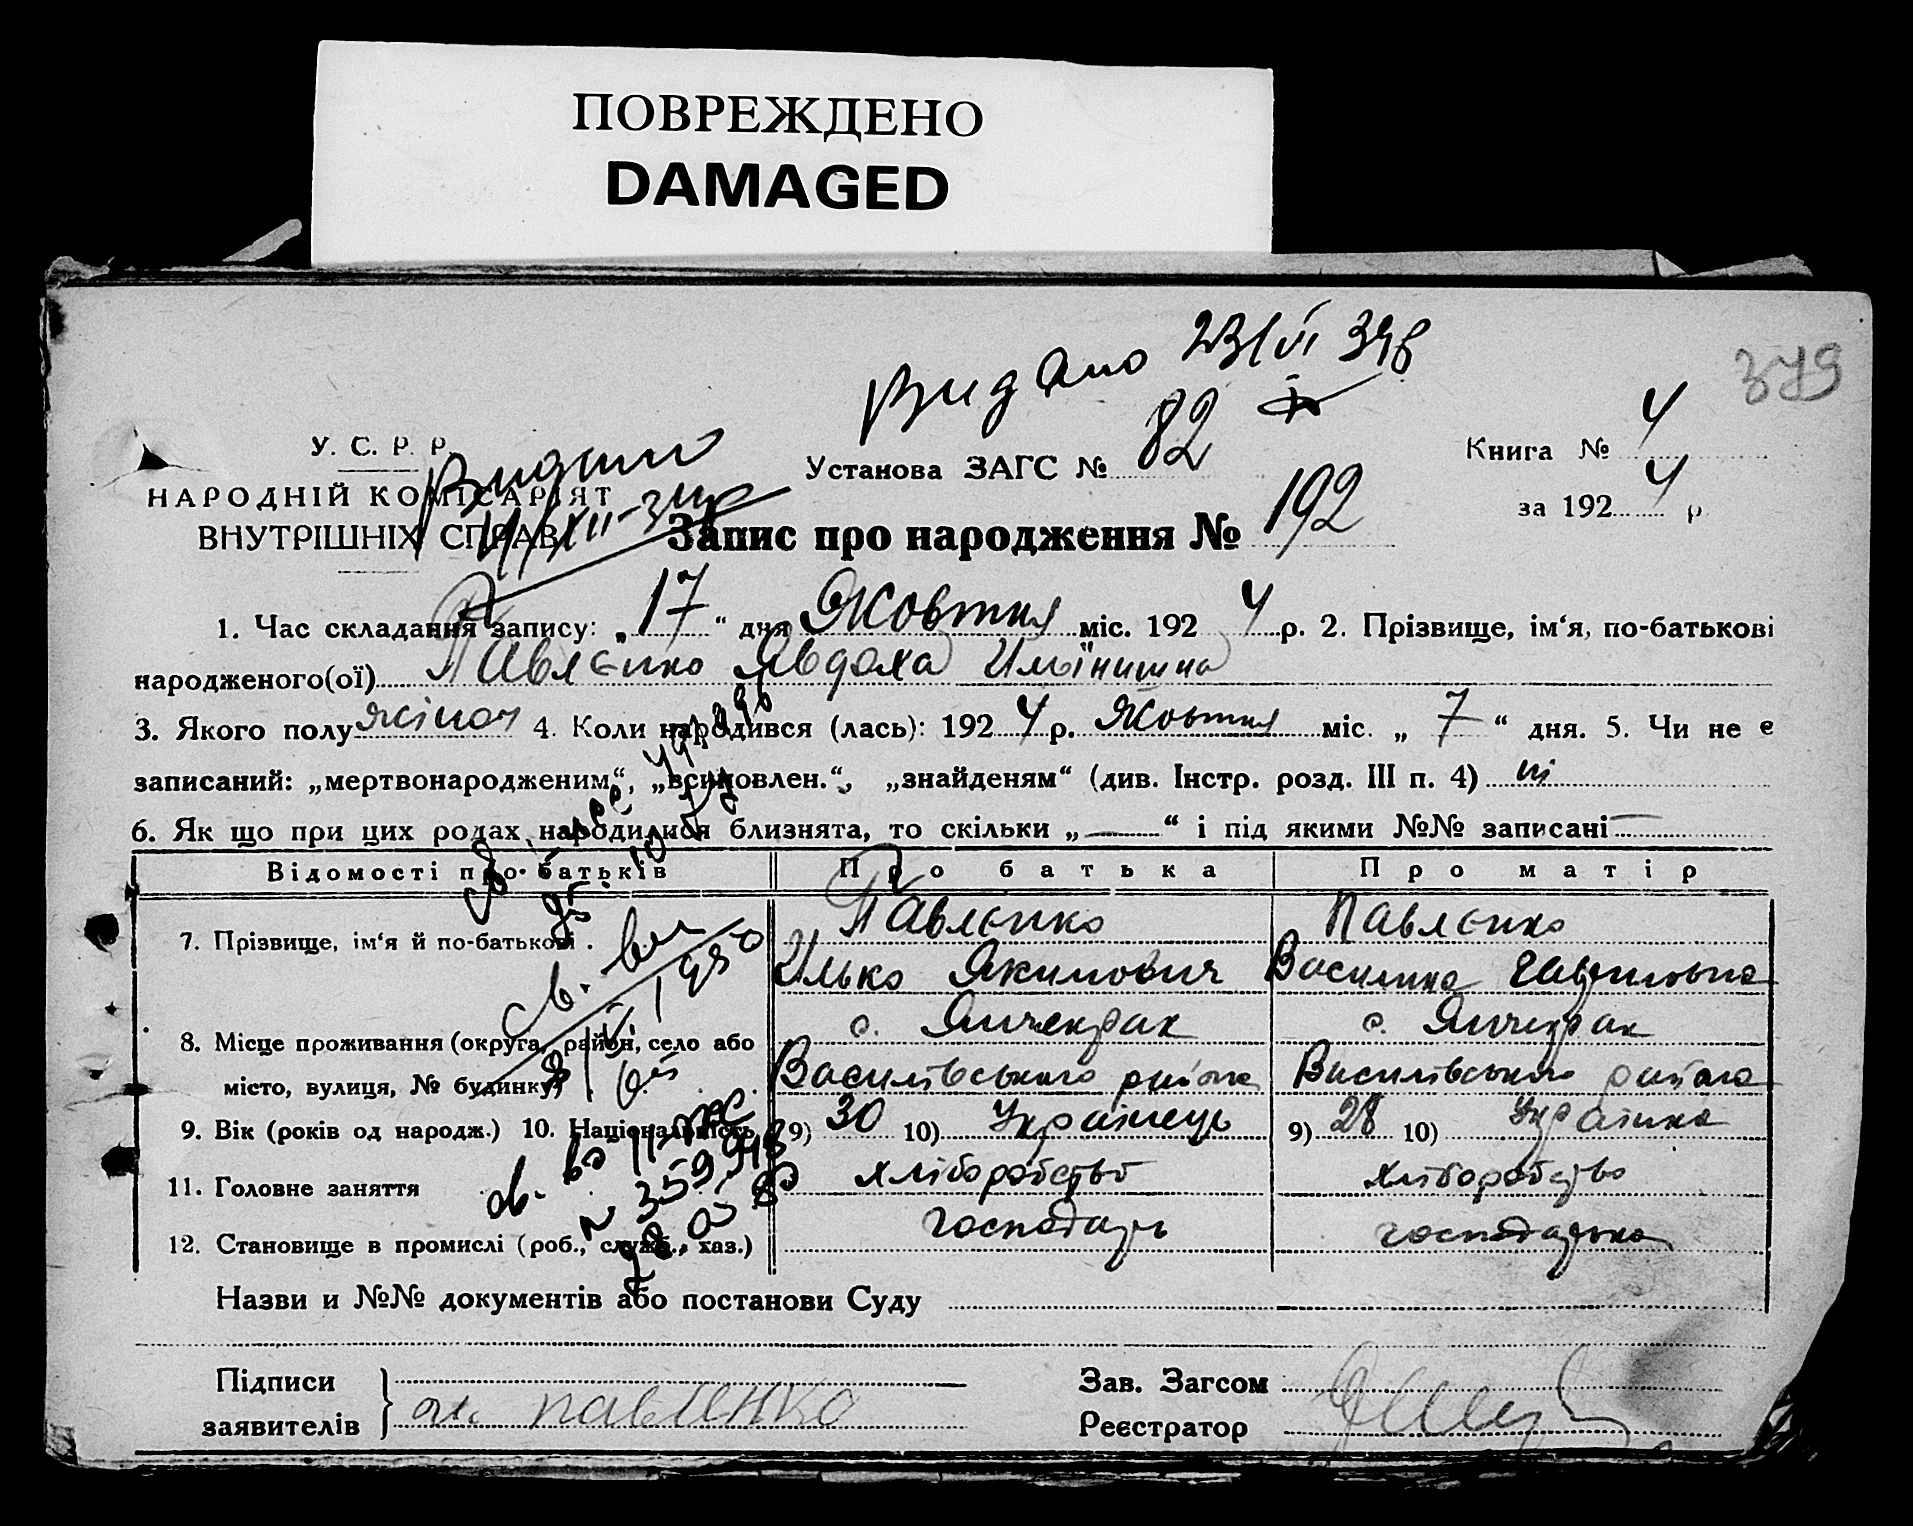 ПОВРЕЖДЕНО
DAMAGED
379
Видано 23/VI 34
У. С. Р. Р.
НАРОДНІЙ КОМІСАРІЯТ
ВНУТРІШНІХ СПРАВ
Видано
Установа ЗАГС № 82
Книга № 4
за 1924 р.
Запис про народження № 192
1. Час складання запису: „17“ дня Жовтня міс. 1924 р. 2. Прізвище, ім‘я, по-батькові
народженого(ої) Павленко Явдоха Ильїнишна
3. Якого полу жіноч 4. Коли народився (лась): 1924 р. Жовтня міс. „7“ дня. 5. Чи не є
записаний: „мертвонародженим“, „всиновлен.“, „знайденям“ (див. Інстр. розд. III п. 4) ні
6. Як що при цих родах народилися близнята, то скільки „—“ і під якими №№ записані —
Відомості про батьків Про батька Про матір
7. Прізвище, ім‘я й по-батькові. Павленко Павленко
Илько Якимович Василина Гавриловна
8. Місце проживання (округа, район, село або с. Янчекрак с. Янчекрак
місто, вулиця, № будинку) Василівського района Василівського района
9. Вік (років од народж.) 10. Національність 9) 30 10) Українець 9) 28 10) Українка
11. Головне заняття хліборобство хліборобство
12. Становище в промислі (роб., служб., хаз.) господарь господарька
Назви и №№ документів або постанови Суду
Підписи
заявителів павленко
Зав. Загсом
Реєстратор